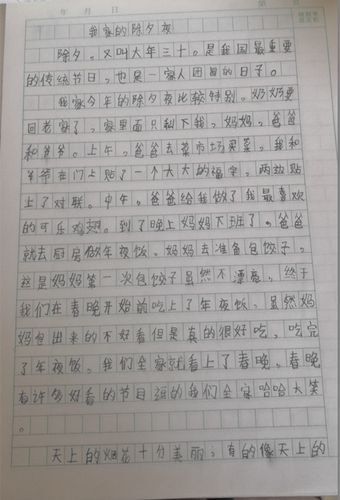 年 月 日
我家的除夕夜
除夕。又叫大年三十。是我国最重要
的传统节日，也是一家人团圆的日子。
我家今年的除夕夜比较特别。奶奶要
回老家了，家里面只剩下我，妈妈，爸爸
和爷爷。上午，爸爸去菜市场买菜，我和
爷爷在门上贴了一个大大的福字，两边贴
上了对联。中午，爸爸给我做了我最喜欢
的可乐鸡翅。到了晚上妈妈下班了。爸爸
就去厨房做年夜饭，妈妈去准备包饺子，
这是妈妈第一次包饺子虽然不漂亮，终于
我们在春晚开始前吃上了年夜饭，虽然妈
妈包出来的不好看但是真的很好吃，吃完
了年夜饭，我们全家就看上了春晚，春晚
有许多好看的节目逗的我们全家哈哈大笑
。
天上的烟花十分美丽，有的像天上的